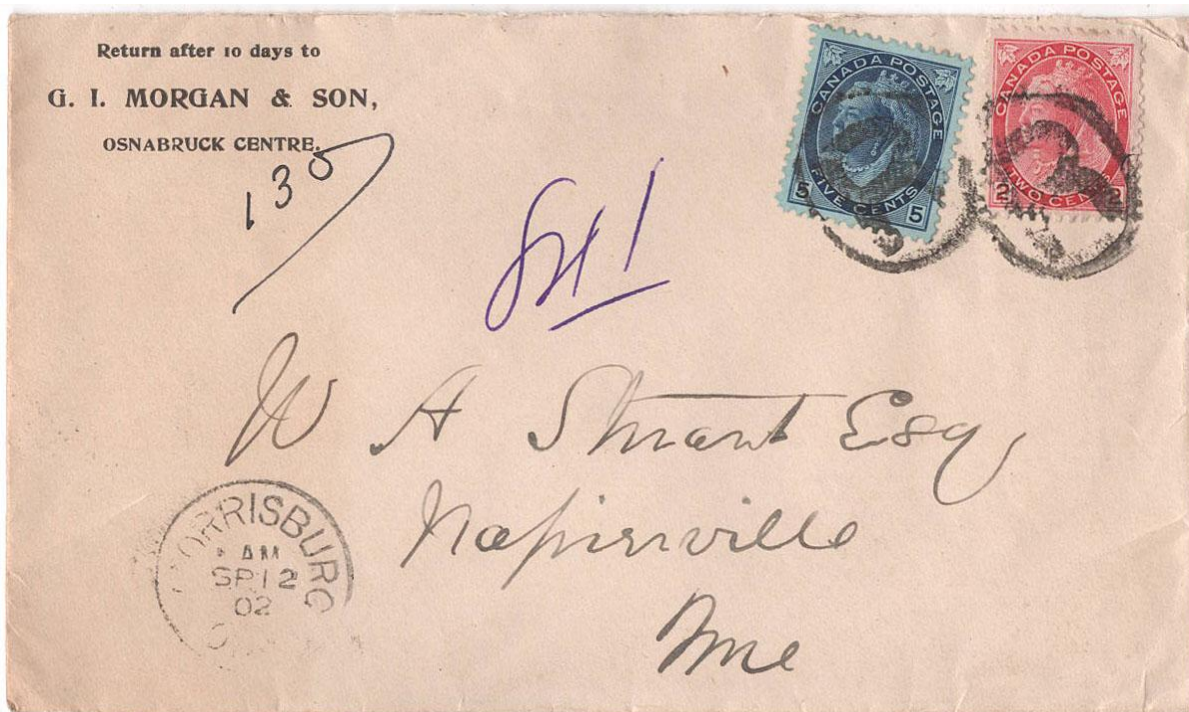 Return after 10 days to
G. I. MORGAN & SON,
OSNABRUCK CENTRE.
130
CANADA POSTAGE
5 FIVE CENTS 5
CANADA POSTAGE
2 TWO CENTS 2
841
W A Stuart Esq
Napierville
MORRISBURG
AM
SP 12
02